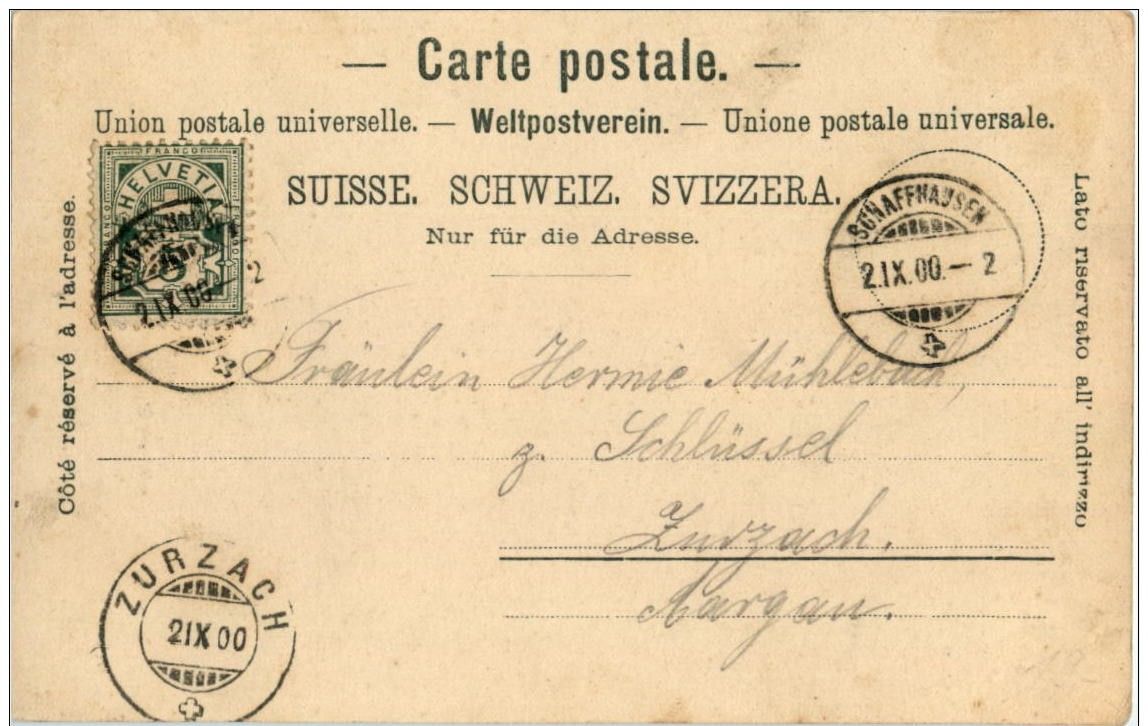 — Carte postale. —
Union postale universelle. — Weltpostverein. — Unione postale universale.
SUISSE. SCHWEIZ. SVIZZERA.
Nur für die Adresse.
Côté réservé à l'adresse.
Lato riservato all' indirizzo
FRANCO
HELVETIA
SCHAFFHAUSEN
2.IX.00.– 2
SCHAFFHAUSEN
2.IX.00.– 2
Fräulein Hermie Mühlebach,
z. Schlüssel
Zurzach.
Aargau.
ZURZACH
2 IX 00